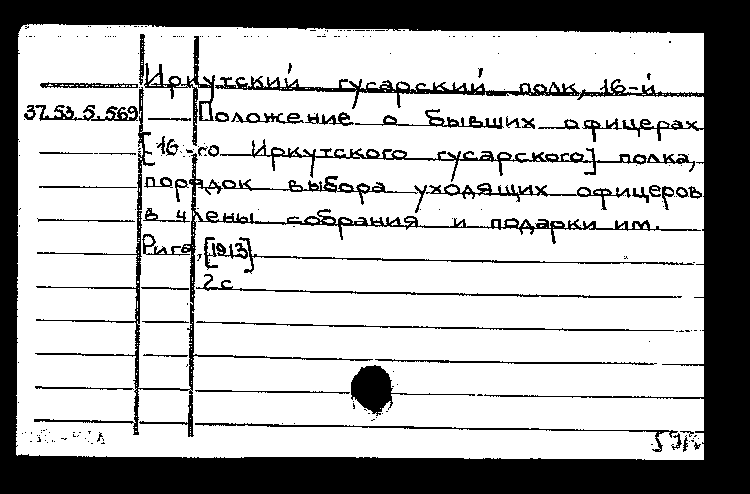 Иркутский гусарский полк, 16-й.
37.53.5.569 Положение о бывших офицерах
[16-го Иркутского гусарского] полка,
порядок выбора уходящих офицеров
в члены собрания и подарки им.
Рига, [1913].
2 с